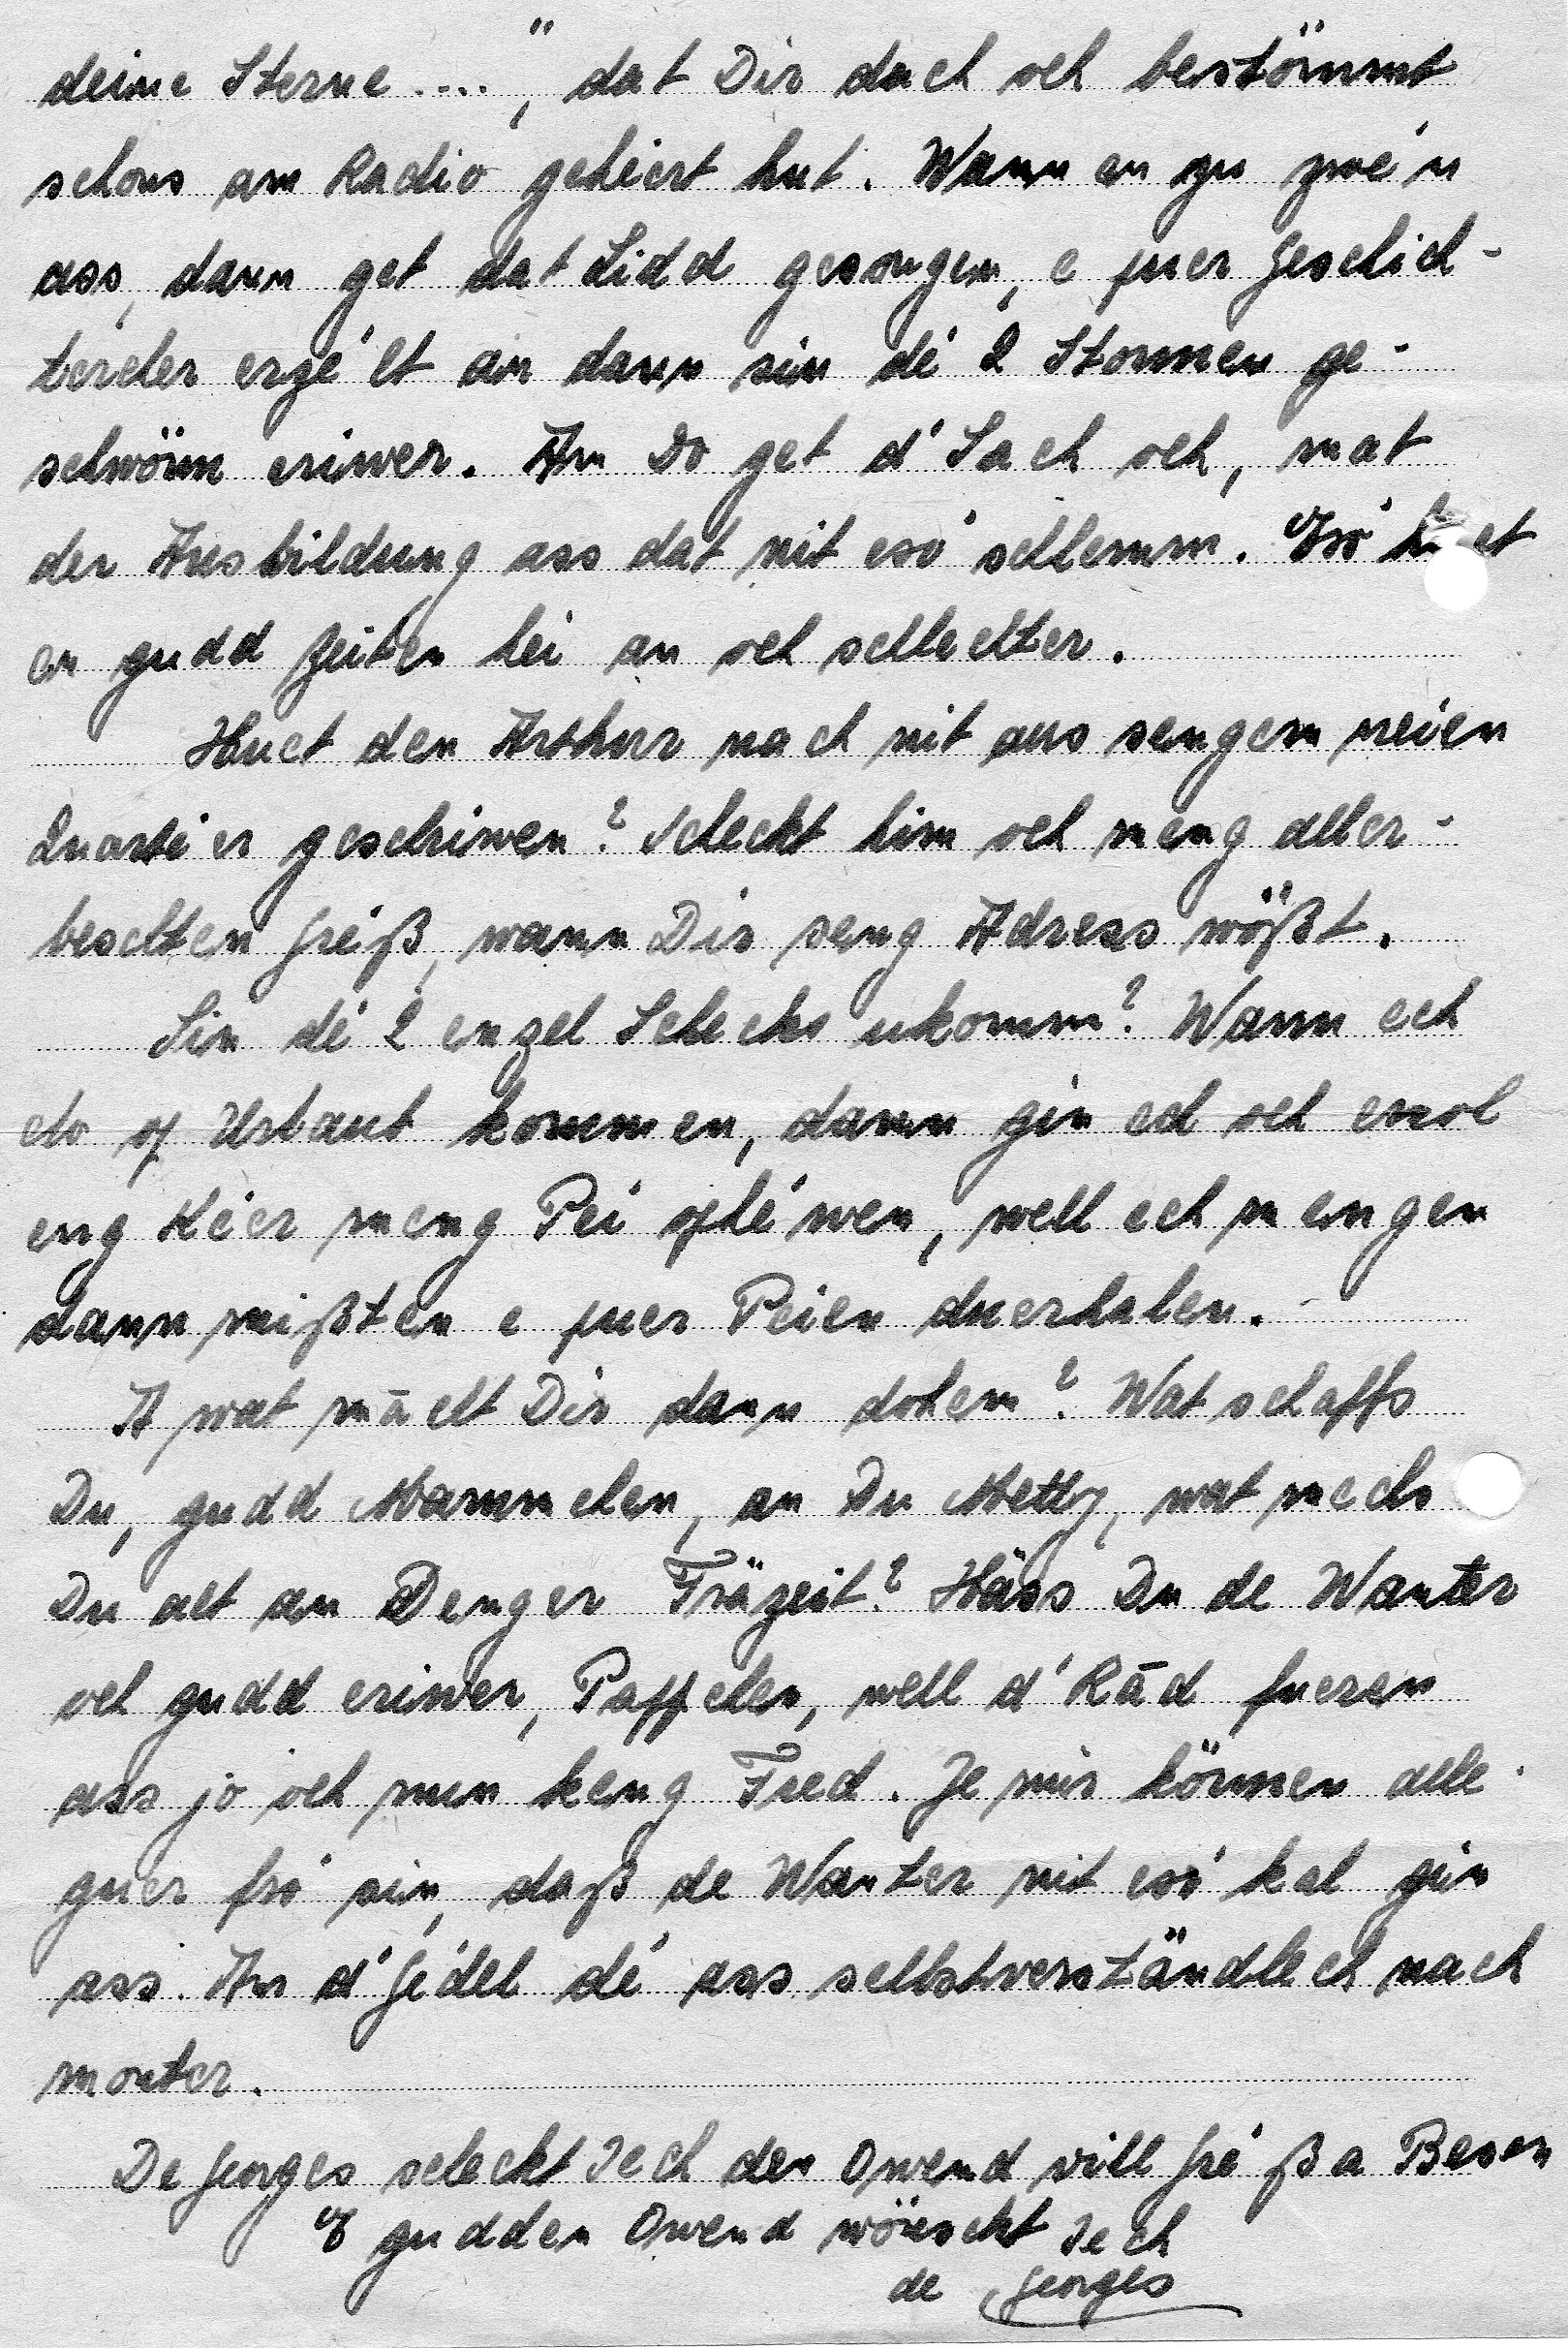 deine Sterne ....", dat Dir dach och bestömmt
schons am Radio gehéert hut. Wann en zu zwé'n
ass, dann get dat Lidd gesongen, e puer Geschich-
tercher erzé'lt an dann sin dé 2 Stonnen ge-
schwönn eriwer. An Do get d'Sach och, mat
der Ausbildung ass dat nit esó schlemm. Esó huet
en gudd Zeiten hei an och schlechter.
Huet den Arthur nach nit aus sengem neien
Quarté'er geschriwen? Scheckt him och méng aller-
beschten Gréiß, wann Dir seng Adress wößt.
Sin dé 2 enzel Schecks ukomm? Wann ech
elo op Urlaub kommen, dann gin ech och emol
eng Kéier meng Pei ophéwen, well ech mengen
dann mißten e puer Peien duerhalen.
A wat mācht Dir dann doheem? Wat schaffs
Du, gudd Mammchen, an Du Metty, wat mechs
Du alt an Denger Fräzeit? Häss Du de Wanter
och gudd eriwer, Pappchen, well d'Rād fueren
ass jo och nun keng Fred. Je mir können alle-
guer fró sin, daß de Wanter nit esó kal gin
ass. An d'Gédél dé ass selbstverständlech nach
monter.
De Georges scheckt Iech den Owend vill Gré'ß a Besen
E gudden Owend wönscht Iech
de Georges